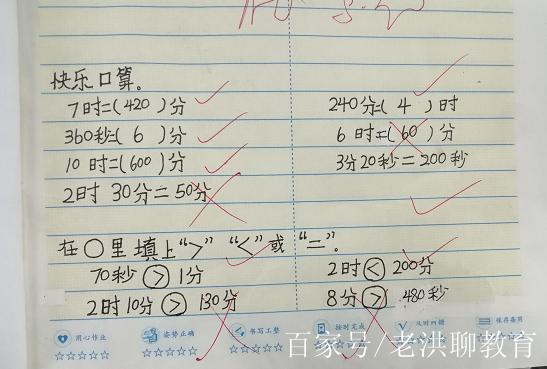 快乐口算。
7时=(420)分
240分=(4)时
360秒=(6)分
6时=(60)分
10时=(600)分
3分20秒=200秒
2时30分=50分
在○里填上“>”“<”或“=”。
70秒>1分
2时<200分
2时10分>130分
8分>480秒
用心作业 姿势正确 书写工整 按时完成 及时纠错 保存备用
☆☆☆☆☆ ☆☆☆☆☆ ☆☆☆☆☆ ☆☆☆☆☆ ☆☆☆☆☆ ☆☆☆☆☆
百家号/老洪聊教育